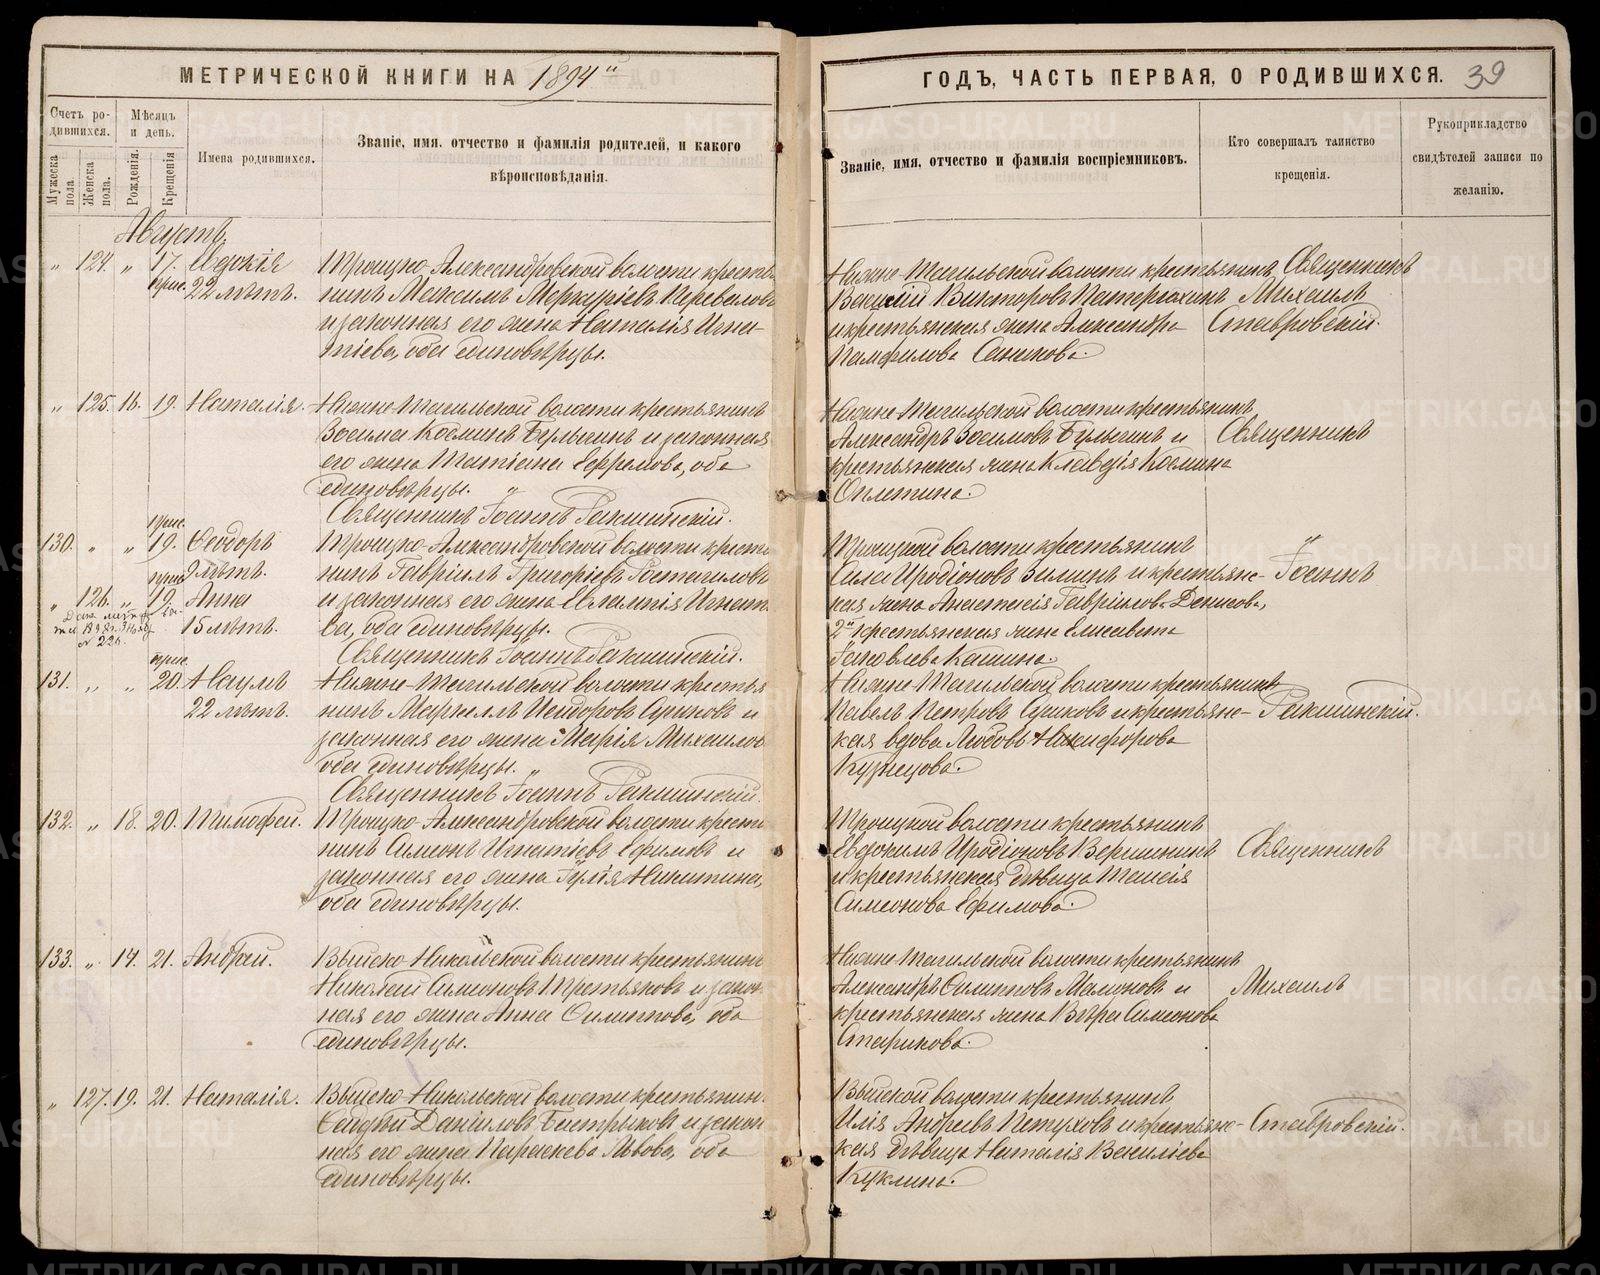 МЕТРИЧЕСКОЙ КНИГИ НА 1894
ГОДЪ, ЧАСТЬ ПЕРВАЯ, О РОДИВШИХСЯ. 39
Счетъ родившихся.
Мужеска пола.
Женска пола.
Мѣсяцъ и день.
Рожденія.
Крещенія
Имена родившихся.
Званіе, имя, отчество и фамилія родителей, и какого
вѣроисповѣданія.
Званіе, имя, отчество и фамилія воспріемниковъ.
Кто совершалъ таинство
крещенія.
Рукоприкладство
свидѣтелей записи по
желанію.
Августъ
„ 124. „ 17. Евдокія
прис. 22 лѣтъ.
Троицко-Александровской волости кресть-
нинъ Максимъ Меркуріевъ Переваловъ
и законная его жена Наталія Игна-
тіева, оба единовѣрцы.
Нижне-Тагильской волости крестьянинъ
Василій Викторовъ Патерюхинъ
и крестьянская жена Александра
Памфилова Саникова.
Священникъ
Михаилъ
Ставровскій.
„ 125. 16. 19. Наталія.
Нижне-Тагильской волости крестьянинъ
Зосима Косминъ Булыгинъ и законная
его жена Татіана Ефремова, оба
единовѣрцы.
Священникъ Іоаннъ Ракшинскій.
Нижне-Тагильской волости крестьянинъ
Александръ Зосимовъ Булыгинъ и
крестьянская жена Клавдія Космина
Оплетина.
Священникъ
130. „ „ прис. 19. Ѳеодоръ
9 лѣтъ.
„ 126. „ прис. 19. Анна
15 лѣтъ.
Троицко-Александровской волости крестья
нинъ Гавріилъ Григоріевъ Ростигаловъ
и законная его жена Евлампія Игнать
ва, оба единовѣрцы.
Священникъ Іоаннъ Ракшинскій.
Троицкой волости крестьянинъ
Сила Иродіоновъ Зилинъ и крестьянс-
кая жена Анастасія Гаврилова Денисова,
2. крестьянская жена Елисавета
Іаковлева Кашина.
Іоаннъ
131. „ „ прис. 20. Наумъ
22 лѣтъ.
Нижне-Тагильской волости крестья
нинъ Маркеллъ Исидоровъ Суриковъ и
законная его жена Марія Михаилов
оба единовѣрцы.
Священникъ Іоаннъ Ракшинскій.
Нижне-Тагильской волости крестьянинъ
Павелъ Петровъ Суриковъ и крестьянс-
кая вдова Любовь Никифорова
Кузнецова.
Ракшинскій.
132. „ 18. 20. Тимофей.
Троицко-Александровской волости крестья
нинъ Симеонъ Игнатіевъ Ефимовъ и
законная его жена Іулія Никитина,
оба единовѣрцы.
Троицкой волости крестьянинъ
Евдокимъ Иродіоновъ Вершининъ
и крестьянская дѣвица Таисія
Симеонова Ефимова.
Священникъ
133. „ 14. 21. Андрей.
Выйско-Никольской волости крестьянинъ
Николай Симеоновъ Третьяковъ и закон
ная его жена Анна Филиппова, оба
единовѣрцы.
Нижне-Тагильской волости крестьянинъ
Александръ Филипповъ Мамоновъ и
крестьянская жена Вѣра Симеонова
Старикова.
Михаилъ
„ 127. 19. 21. Наталія.
Выйско-Никольской волости крестьянин
Савдѣй Даніиловъ Бастрыковъ и закон
ная его жена Параскева Львова, оба
единовѣрцы.
Выйской волости крестьянинъ
Илія Андреевъ Пѣтуховъ и крестьянс-
кая дѣвица Наталія Василіева
Куклина.
Ставровскій.
METRIKI.GASO-URAL.RU